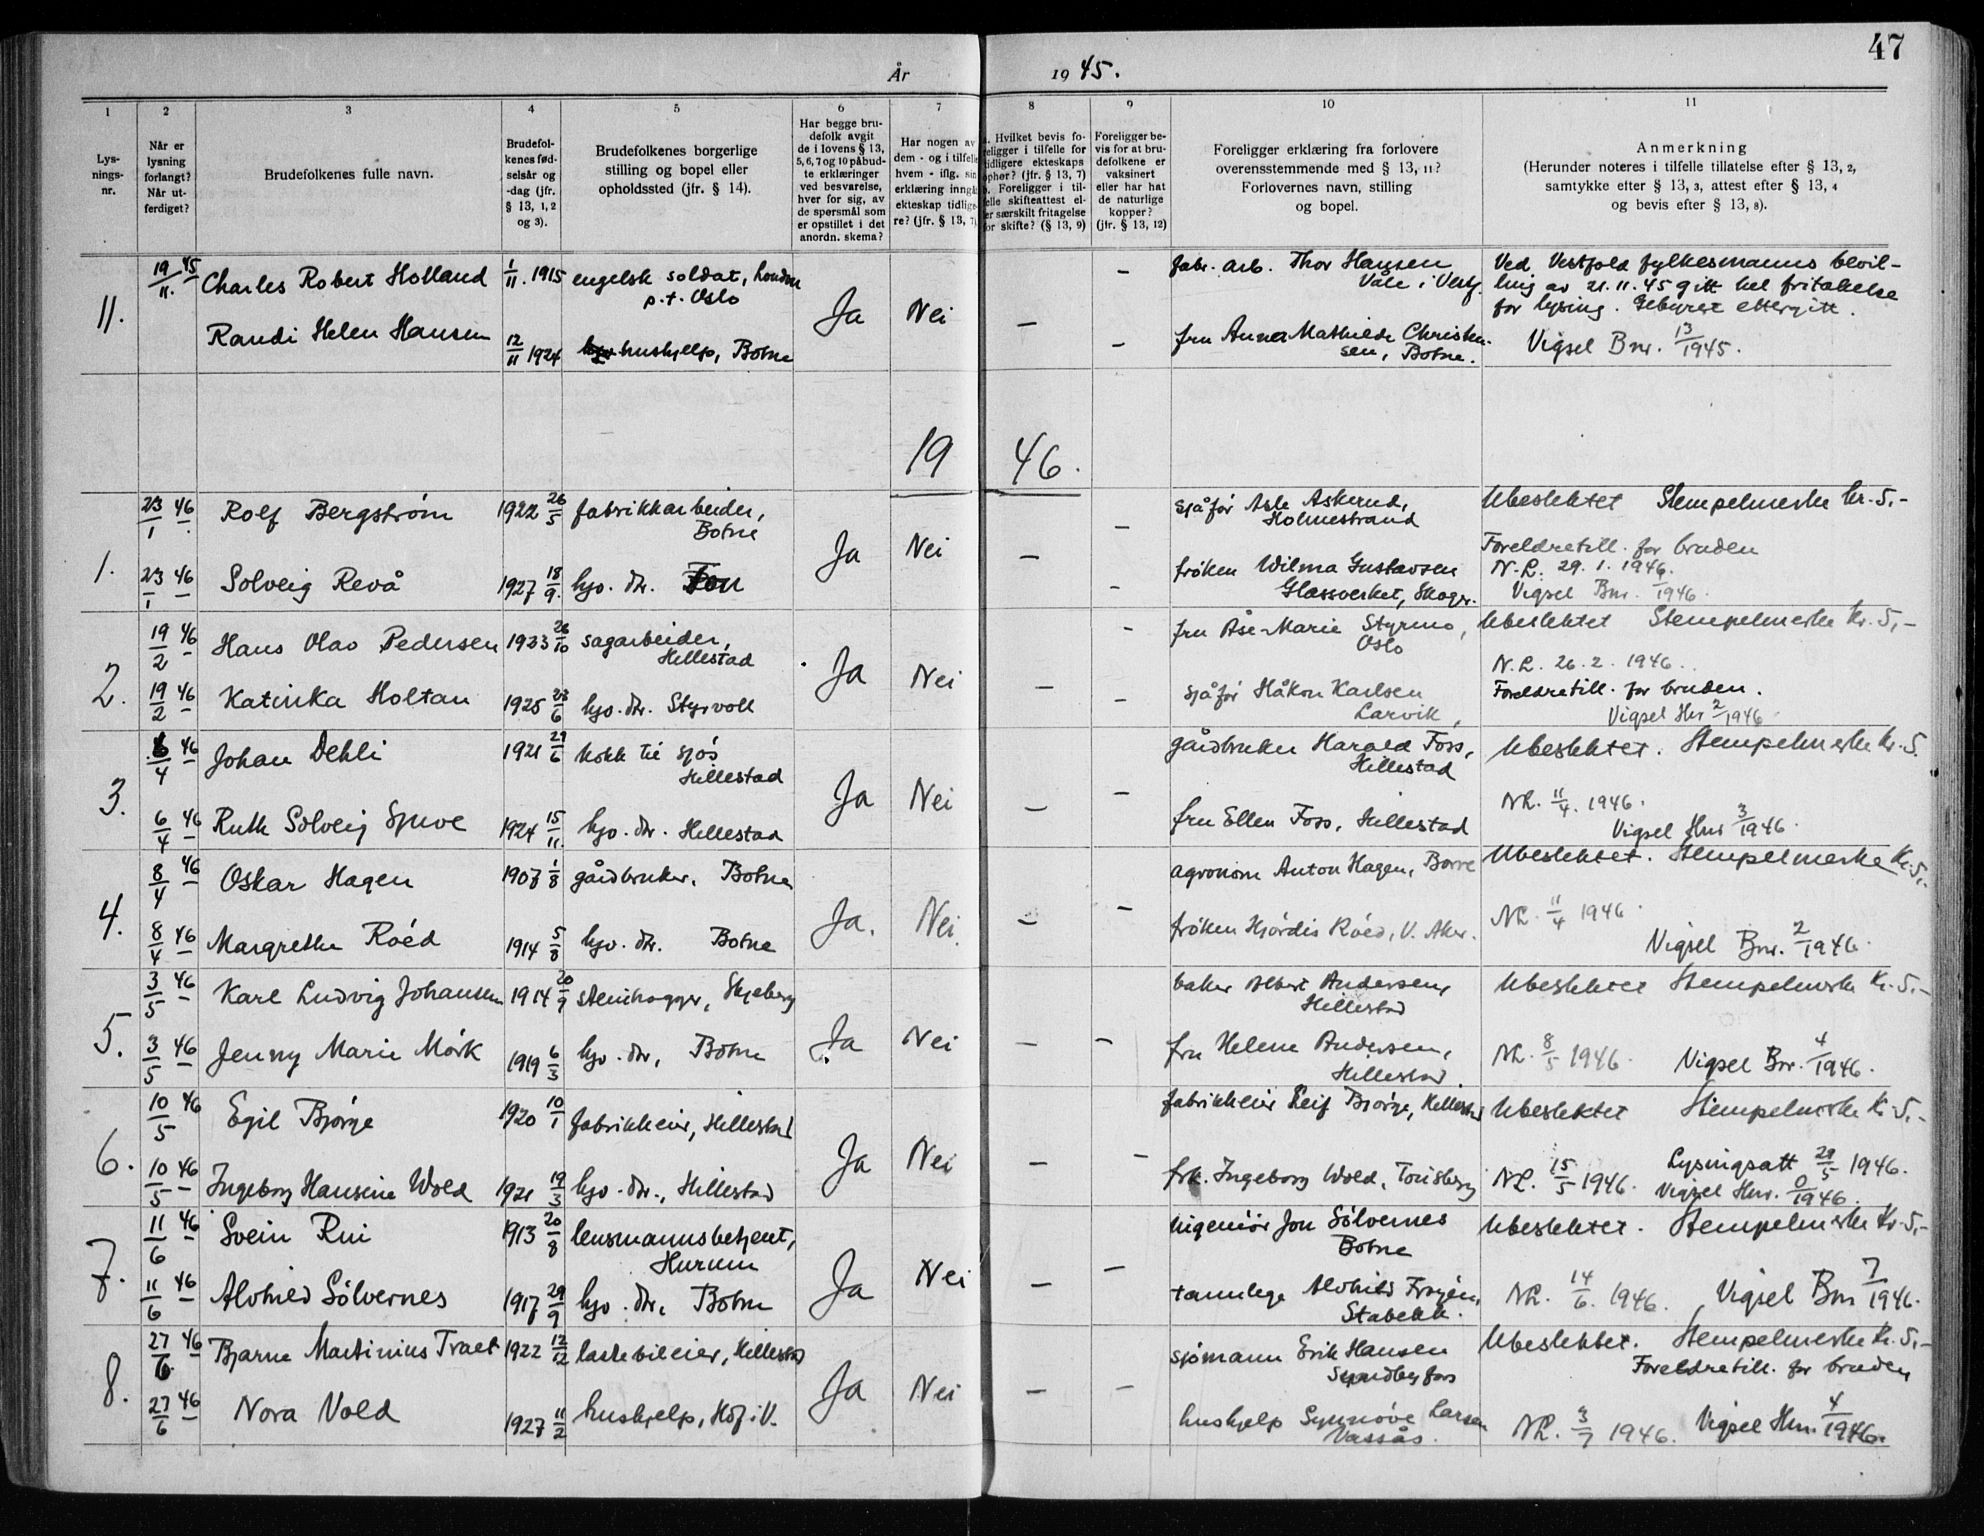 47
År 1945.
1 2 3 4 5 6 7 8 9 10 11
Lys-
nings-
nr.
Når er
lysning
forlangt?
Når ut-
ferdiget?
Brudefolkenes fulle navn.
Brudefol-
kenes fød-
selsår og
-dag (jfr.
§ 13, 1, 2
og 3).
Brudefolkenes borgerlige
stilling og bopel eller
opholdssted (jfr. § 14).
Har begge bru-
defolk avgit
de i lovens § 13,
5, 6, 7 og 10 påbud-
te erklæringer
ved besvarelse,
hver for sig, av
de spørsmål som
er opstillet i det
anordn. skema?
Har nogen av
dem - og i tilfelle
hvem - iflg. sin
erklæring inngåt
ekteskap tidlige-
re? (jfr. § 13, 7)
a. Hvilket bevis fo-
religger i tilfelle for
tidligere ekteskaps
ophør? (jfr. § 13, 7)
b. Foreligger i til-
felle skifteattest el-
ler særskilt fritagelse
for skifte? (§ 13, 9)
Foreligger be-
vis for at bru-
defolkene er
vaksinert
eller har hat
de naturlige
kopper?
(jfr. § 13, 12)
Foreligger erklæring fra forlovere
overensstemmende med § 13, 11?
Forlovernes navn, stilling
og bopel.
Anmerkning
(Herunder noteres i tilfelle tillatelse efter § 13, 2,
samtykke efter § 13, 3, attest efter § 13, 4
og bevis efter § 13, 8).
11.
19/11. 45 Charles Robert Holland 1/11. 1915 engelsk soldat, London
p.t. Oslo
Ja Nei – fabr. arb. Thor Hansen
Våle i Vestf.
Ved Vestfold fylkesmanns bevil-
ling av 21.11.45 gitt hel fritakelse
for lysing. Gebyret ettergitt.
Randi Helen Hansen 12/11 1924 hushjelp, Botne
– – fru Anna Mathilde Christen-
sen, Botne.
Vigsel Bnr. 13/1945.
19 46.
1.
23/1 46 Rolf Bergstrøm 1922 26/5 fabrikkarbeider,
Botne
Ja Nei – – sjåfør Asle Askerud,
Holmestrand
Ubeslektet Stempelmerke kr. 5,-
Foreldretill. for bruden
23/1 46 Solveig Revå 1927 18/9. hjv. dtr. Fon
– frøken Wilma Gustavsen
Glassverket, Skoger.
N.L. 29.1.1946.
Vigsel Bnr. 1/1946.
2.
19/2 46 Hans Olav Pedersen 1923 26/10 sagarbeider,
Hillestad
Ja Nei – – fru Åse-Marie Styrmo,
Oslo
Ubeslektet Stempelmerke Kr. 5,-
N.L. 26.2.1946.
19/2 46 Katinka Holtan 1925 23/6 hjv. dtr. Styrvoll
– sjåfør Håkon Karlsen
Larvik,
Foreldretill. for bruden.
Vigsel Hnr 2/1946.
3.
6/4 46 Johan Dehli 1921 29/6 kokk til sjøs
Hillestad
Ja Nei – – gårdbruker Harald Foss,
Hillestad
Ubeslektet. Stempelmerke Kr. 5
6/4 46 Ruth Solveig Sjuve 1924 15/11. hjv. dtr. Hillestad
fru Ellen Foss, Hillestad
NL. 11/4. 1946.
Vigsel Hnr 3/1946.
4.
8/4 46 Oskar Hagen 1907 1/8 gårdbruker. Botne
Ja. Nei. – – agronom Anton Hagen, Borre
Ubeslektet. Stempelmerke Kr. 5,-
8/4 46 Margrethe Røed 1914 5/8 hjv. dtr. Botne
frøken Hjørdis Røed, V. Aker.
NL. 11/4 1946.
Vigsel Bnr. 2/1946.
5.
3/5 46 Karl Ludvig Johansen 1914 20/9 stenhogger, Skjeberg
Ja Nei – – baker Albert Andersen,
Hillestad
Ubeslektet Stempelmerke Kr. 5,-
3/5 46 Jenny Marie Mørk 1919 6/3 hjv. dtr, Botne
fru Helene Andersen,
Hillestad.
NL. 8/5 1946. Vigsel Bnr. 4/1946.
6.
10/5 46 Egil Bjørge 1920 10/1 fabrikkeier, Hillestad
Ja Nei – – fabrikkeier Leif Bjørge, Hillestad
Ubeslektet Stempelmerke Kr. 5,-
10/5 46 Ingeborg Hansine Wold 1921 19/3 hjv. dtr., Hillestad
frk. Ingeborg Wold, Tønsberg
NL. 15/5 1946. Lysingsatt 29/5 1946.
Vigsel Hnr. 0/1946.
7.
11/6 46 Svein Rui 1913 20/8 lensmannsbetjent,
Hurum
Ja Nei – – ingeniør Jon Sølvernes
Botne
Ubeslektet. Stempelmerke Kr. 5,-
11/6 46 Alvhild Sølvernes 1917 29/9 hjv. dtr, Botne
tannlege Alvhild Frøjen,
Stabekk.
NL. 14/6. 1946. Vigsel Bnr 7/1946.
8.
27/6 46 Bjarne Martinius Traet 1922 12/12 lastebileier, Hillestad
Ja Nei – – sjømann Erik Hansen
Sundbyfoss
Ubeslektet. Stempelmerke Kr. 5,-
Foreldretill. for bruden
27/6 46 Nora Vold 1927 11/2 hushjelp, Hof i V.
hushjelp Synnøve Larsen
Vassås.
NL. 3/7 1946. Vigsel Hnr. 4/1946.